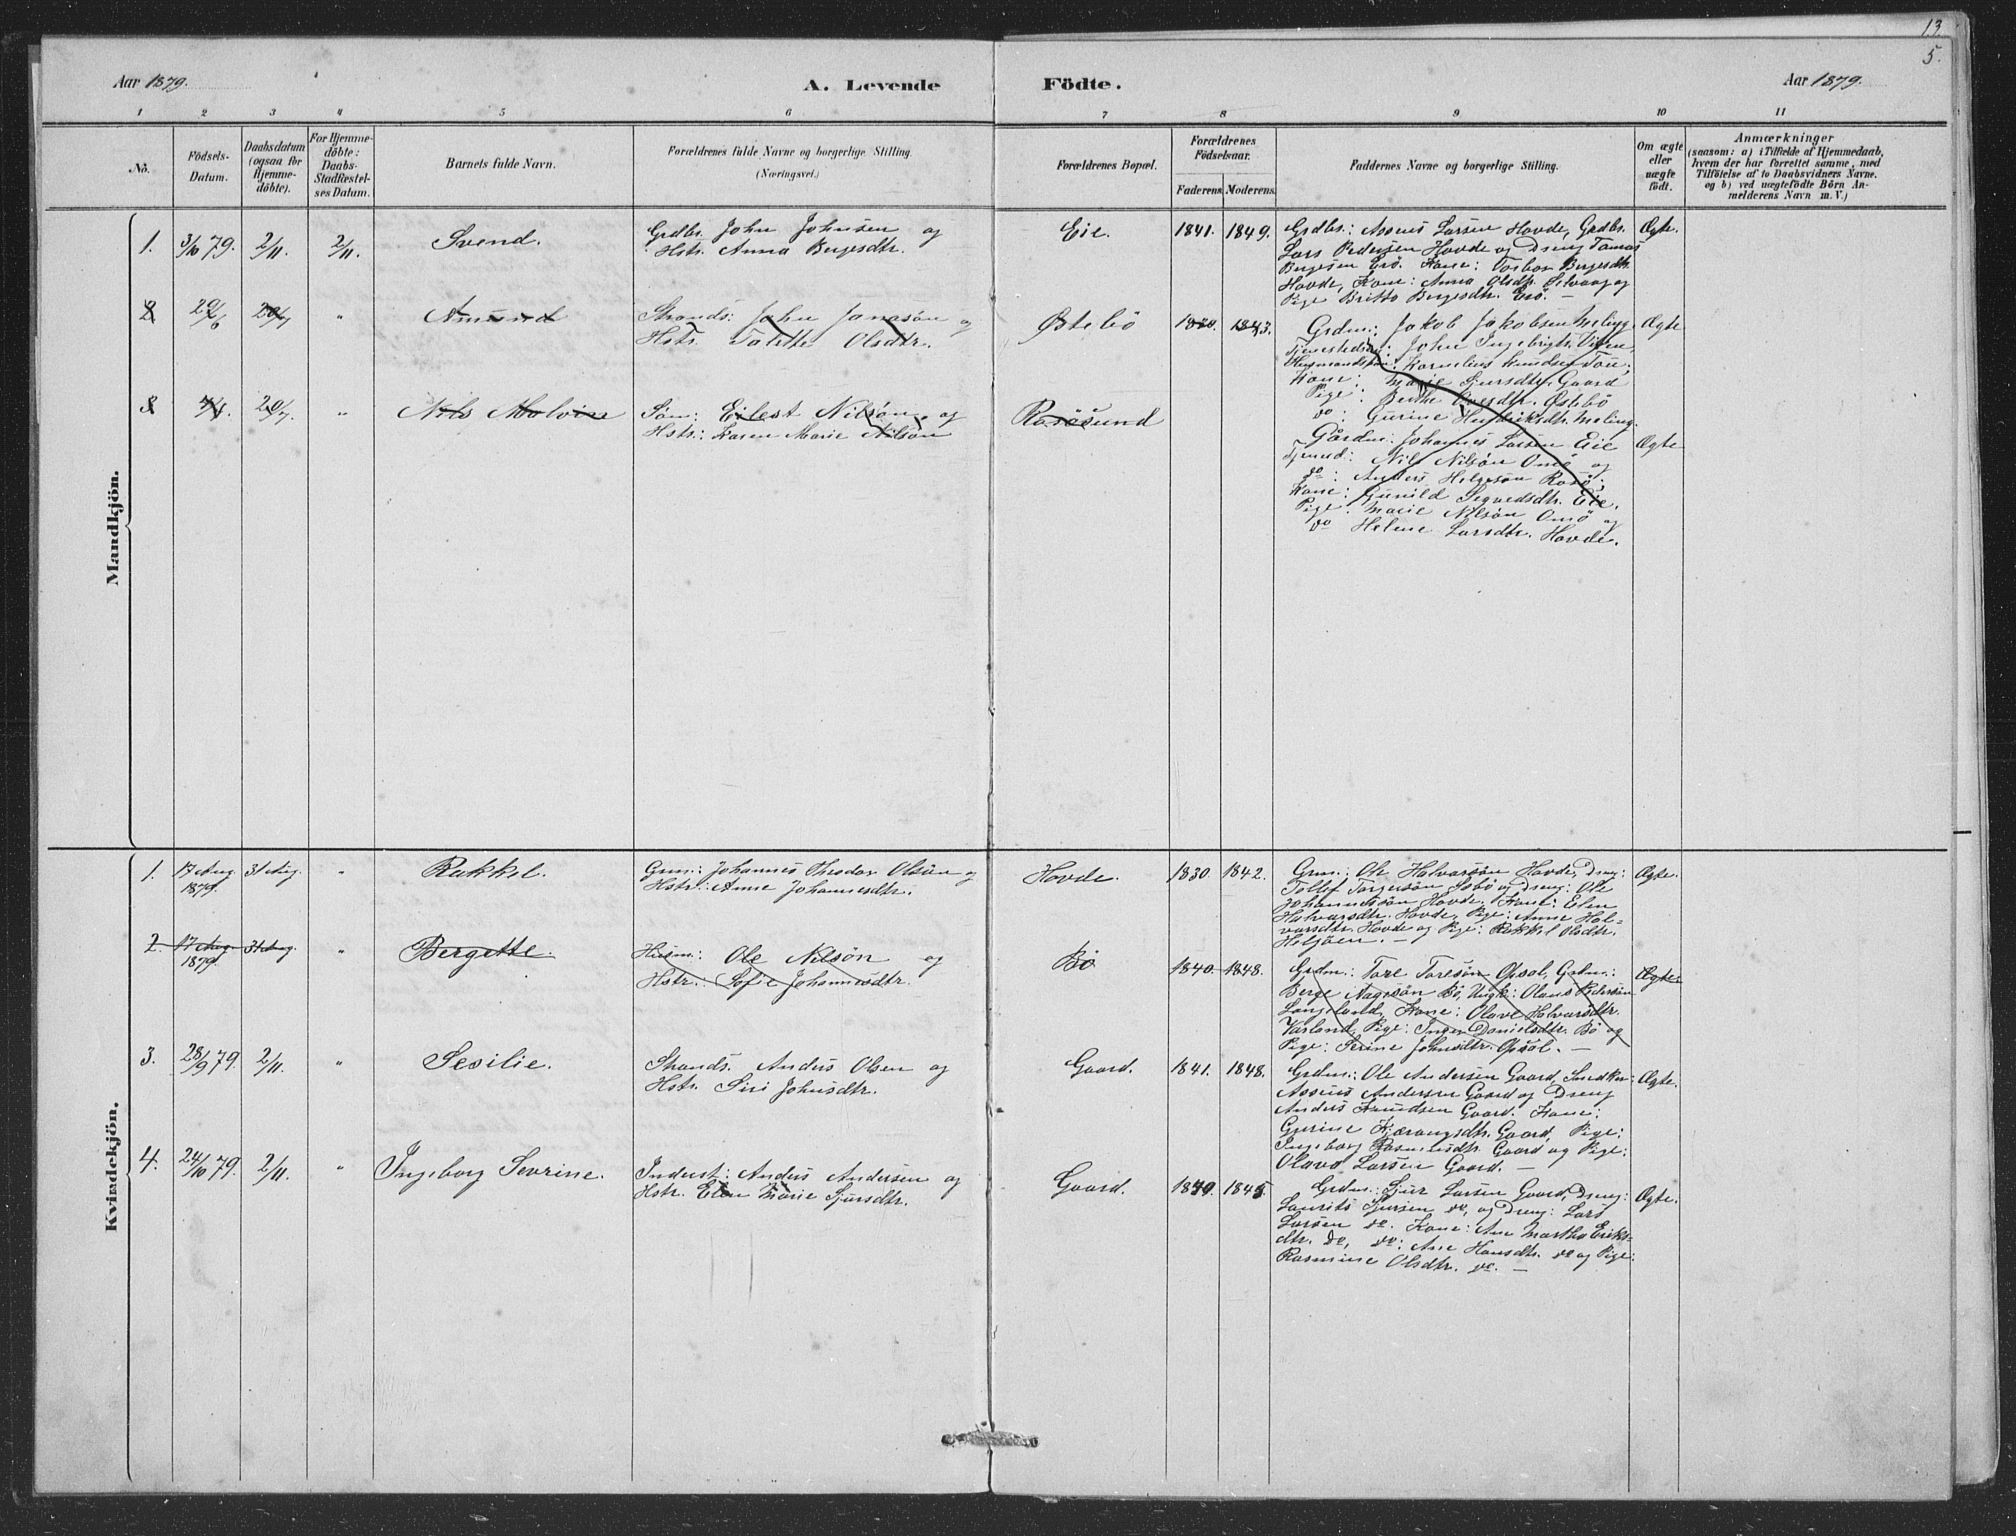 13
5.
Aar 1879.
A. Levende
Födte.
Aar 1879.
1 2 3 4 5 6 7 8 9 10 11
No.
Födsels-
Datum.
Daabsdatum
(ogsaa for
Hjemme-
döbte).
For Hjemme-
döbte:
Daabs-
Stadfæstel-
ses Datum.
Barnets fulde Navn.
Forældrenes fulde Navne og borgerlige Stilling.
(Næringsvei.)
Forældrenes Bopæl.
Forældrenes
Födselsaar.
Faderens. Moderens.
Faddernes Navne og borgerlige Stilling.
Om ægte
eller
uægte
födt.
Anmærkninger
(saasom: a) i Tilfælde af Hjemmedaab,
hvem der har forrettet samme, med
Tilföielse af to Daabsvidners Navne.
og b) ved uægtefödte Börn An-
melderens Navn m. V.)
Mandkjön.
1. 3/10 79. 2/11. 2/11. Svend.
Grdbr. John Johnsen og
Hstr. Anna Bergesdtr.
Eie. 1841. 1849.
Grdbr: Assens Larsen Hovde, Grdbr.
Lars Pedersen Hovde og Dreng Tamas
Bergesen Erö. Kone: Torbor Bergesdtr.
Hovde, Kone: Anna Olsdtr. Selvaag og
Pige Britto Bergesdtr. Erö. —
Ægte.
2 29/6 20/7 " Amund
Strands: John Jonasön og
Hstr. Talette Olsdtr.
Östebö 1843.
Grdm.: Jakob Jakobsen Meling.
Tjenestedr: John Ingebrigts. Viken,
Husmandsön: Kornelius Knudsen Tou,
Kone: Marie Sjursdtr. Gaard
Pige: Berthe Ovesdtr. Östebö
do: Gurine Hendriksdtr. Meling.
Ægte
3 20/7 " Nils Malvin
Söm: Eilert Nilsön og
Hstr: Karen Marie Nilsön
Rosösund
Gårdm: Johannes Larsen Eie
Tjened: Nils Nilsön Omö og
do: Anders Helgesön Rosö;
Kone: Gunild Segvedsdtr. Eie.
Pige: Marie Nilsön Omö og
do Helene Larsdtr. Hovde.
Ægte
Kvindekjön.
1. 17 Aug.
1879. 31 Aug. " Rakkel.
Grm: Johannes Thodor Olsön og
Hstr: Anne Johannesdtr.
Hovde. 1830. 1842.
Grm: Ole Halvorsön Hovde, Dreng:
Tollef Torgersön Isbö og Dreng: Ole
Johannessön Hovde. Kone: Elen
Halvarsdtr. Hovde, Pige: Anne Hal-
varsdtr. Hovde og Pige: Rakkel Olsdtr.
Ægte.
2. 17 Aug.
1879. 31 Aug. " Bergette.
Husm: Ole Nilsön og
Hstr: Sofie Johannesdtr.
Bö 1840. 1848.
Grdm.: Tore Toresön Opsal, Grdm.:
Berge Aagesön Bö, Ungk: Olaus Pedersön
Langeland, Kone: Olave Halvarsdtr.
Varland, Pige: Inger Danielsdtr. Bö og
Pige: Serine Johnsdtr. Opsal. —
Ægte
3. 28/9 79. 2/11. " Sesilie.
Strands. Anders Olsen og
Hstr. Siri Johnsdtr.
Gaard. 1841. 1848.
Grdm: Ole Andersen Gaard, Snedker:
Assens Andersen Gaard og Dreng
Anders Knudsen Gaard. Kone:
Gurine Kjærangsdtr. Gaard, Pige:
Ingeborg Rasmusdtr. Gaard og Pige:
Olava Larsen Gaard. —
Ægte.
4. 24/10 79. 2/11. " Ingeborg Sevrine.
Inderst: Anders Andersen og
Hstr. Elen Marie Sjursdtr.
Gaard. 1849. 1845.
Grdm.: Sjur Larsen Gaard, Dreng:
Laurits Sjursen do, og Dreng: Lars
Larsen do. Kone: Ane Martha Eriks-
dtr. do, do: Ane Hansdtr. do og Pige:
Rasmine Olsdtr. do. —
Ægte.